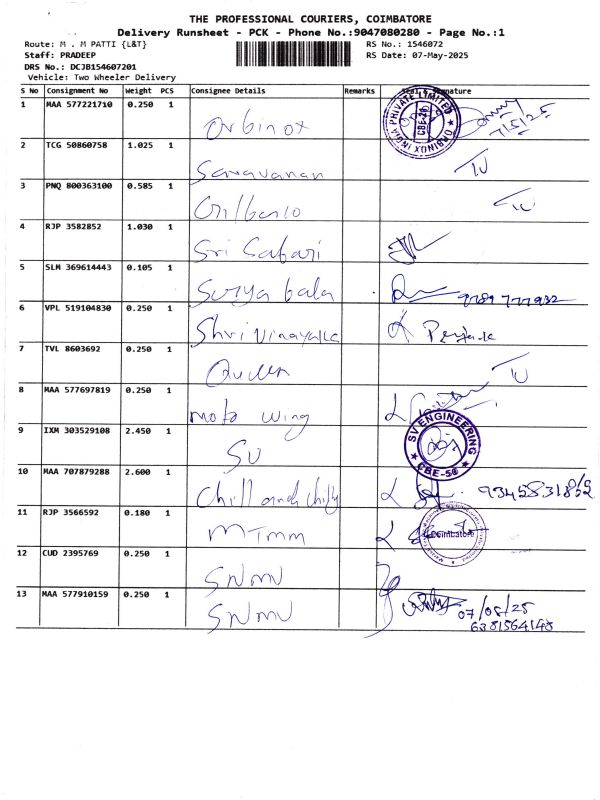 THE PROFESSIONAL COURIERS, COIMBATORE
Delivery Runsheet - PCK - Phone No.:9047080280 - Page No.:1
Route: M . M PATTI {L&T} RS No.: 1546072
Staff: PRADEEP RS Date: 07-May-2025
DRS No.: DCJB154607201
Vehicle: Two Wheeler Delivery
S No Consignment No Weight PCS Consignee Details Remarks Seal & Signature
1 MAA 577221710 0.250 1 Orbinox
ORBINOX INDIA PRIVATE LIMITED CBE-21
2 TCG 50860758 1.025 1 Saravanan
3 PNQ 800363100 0.585 1
4 RJP 3582852 1.030 1 Sri Safari
5 SLM 369614443 0.105 1 Surya bala 9789777932
6 VPL 519104830 0.250 1 Shri Vinayaka
7 TVL 8603692 0.250 1 Queen
8 MAA 577697819 0.250 1 moto wing
9 IXM 303529108 2.450 1 SV
SV ENGINEERING CBE-50
10 MAA 707879288 2.600 1 Chill and chilly
11 RJP 3566592 0.180 1 MTMM
Coimbatore
12 CUD 2395769 0.250 1 SNMV
13 MAA 577910159 0.250 1 SNMV
07/05/25
6381564148